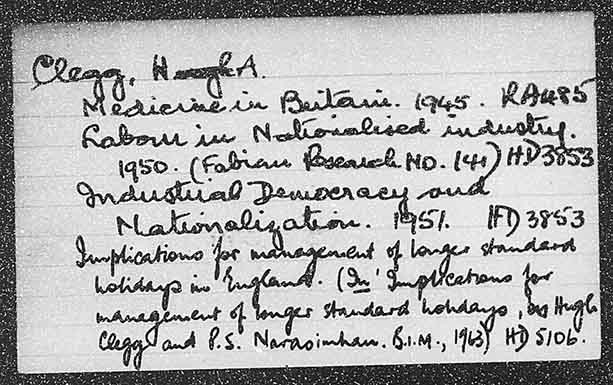 Clegg, Hugh A.
Medicine in Britain. 1945. RA485
Labour in Nationalised industry.
1950. (Fabian Research No. 141) HD3853
Industrial Democracy and
Nationalization. 1951. HD3853
Implications for management of longer standard
holidays in England. (In 'Implications for
management of longer standard holidays', by Hugh
Clegg and P.S. Narasimhan. B.I.M., 1963) HD 5106.